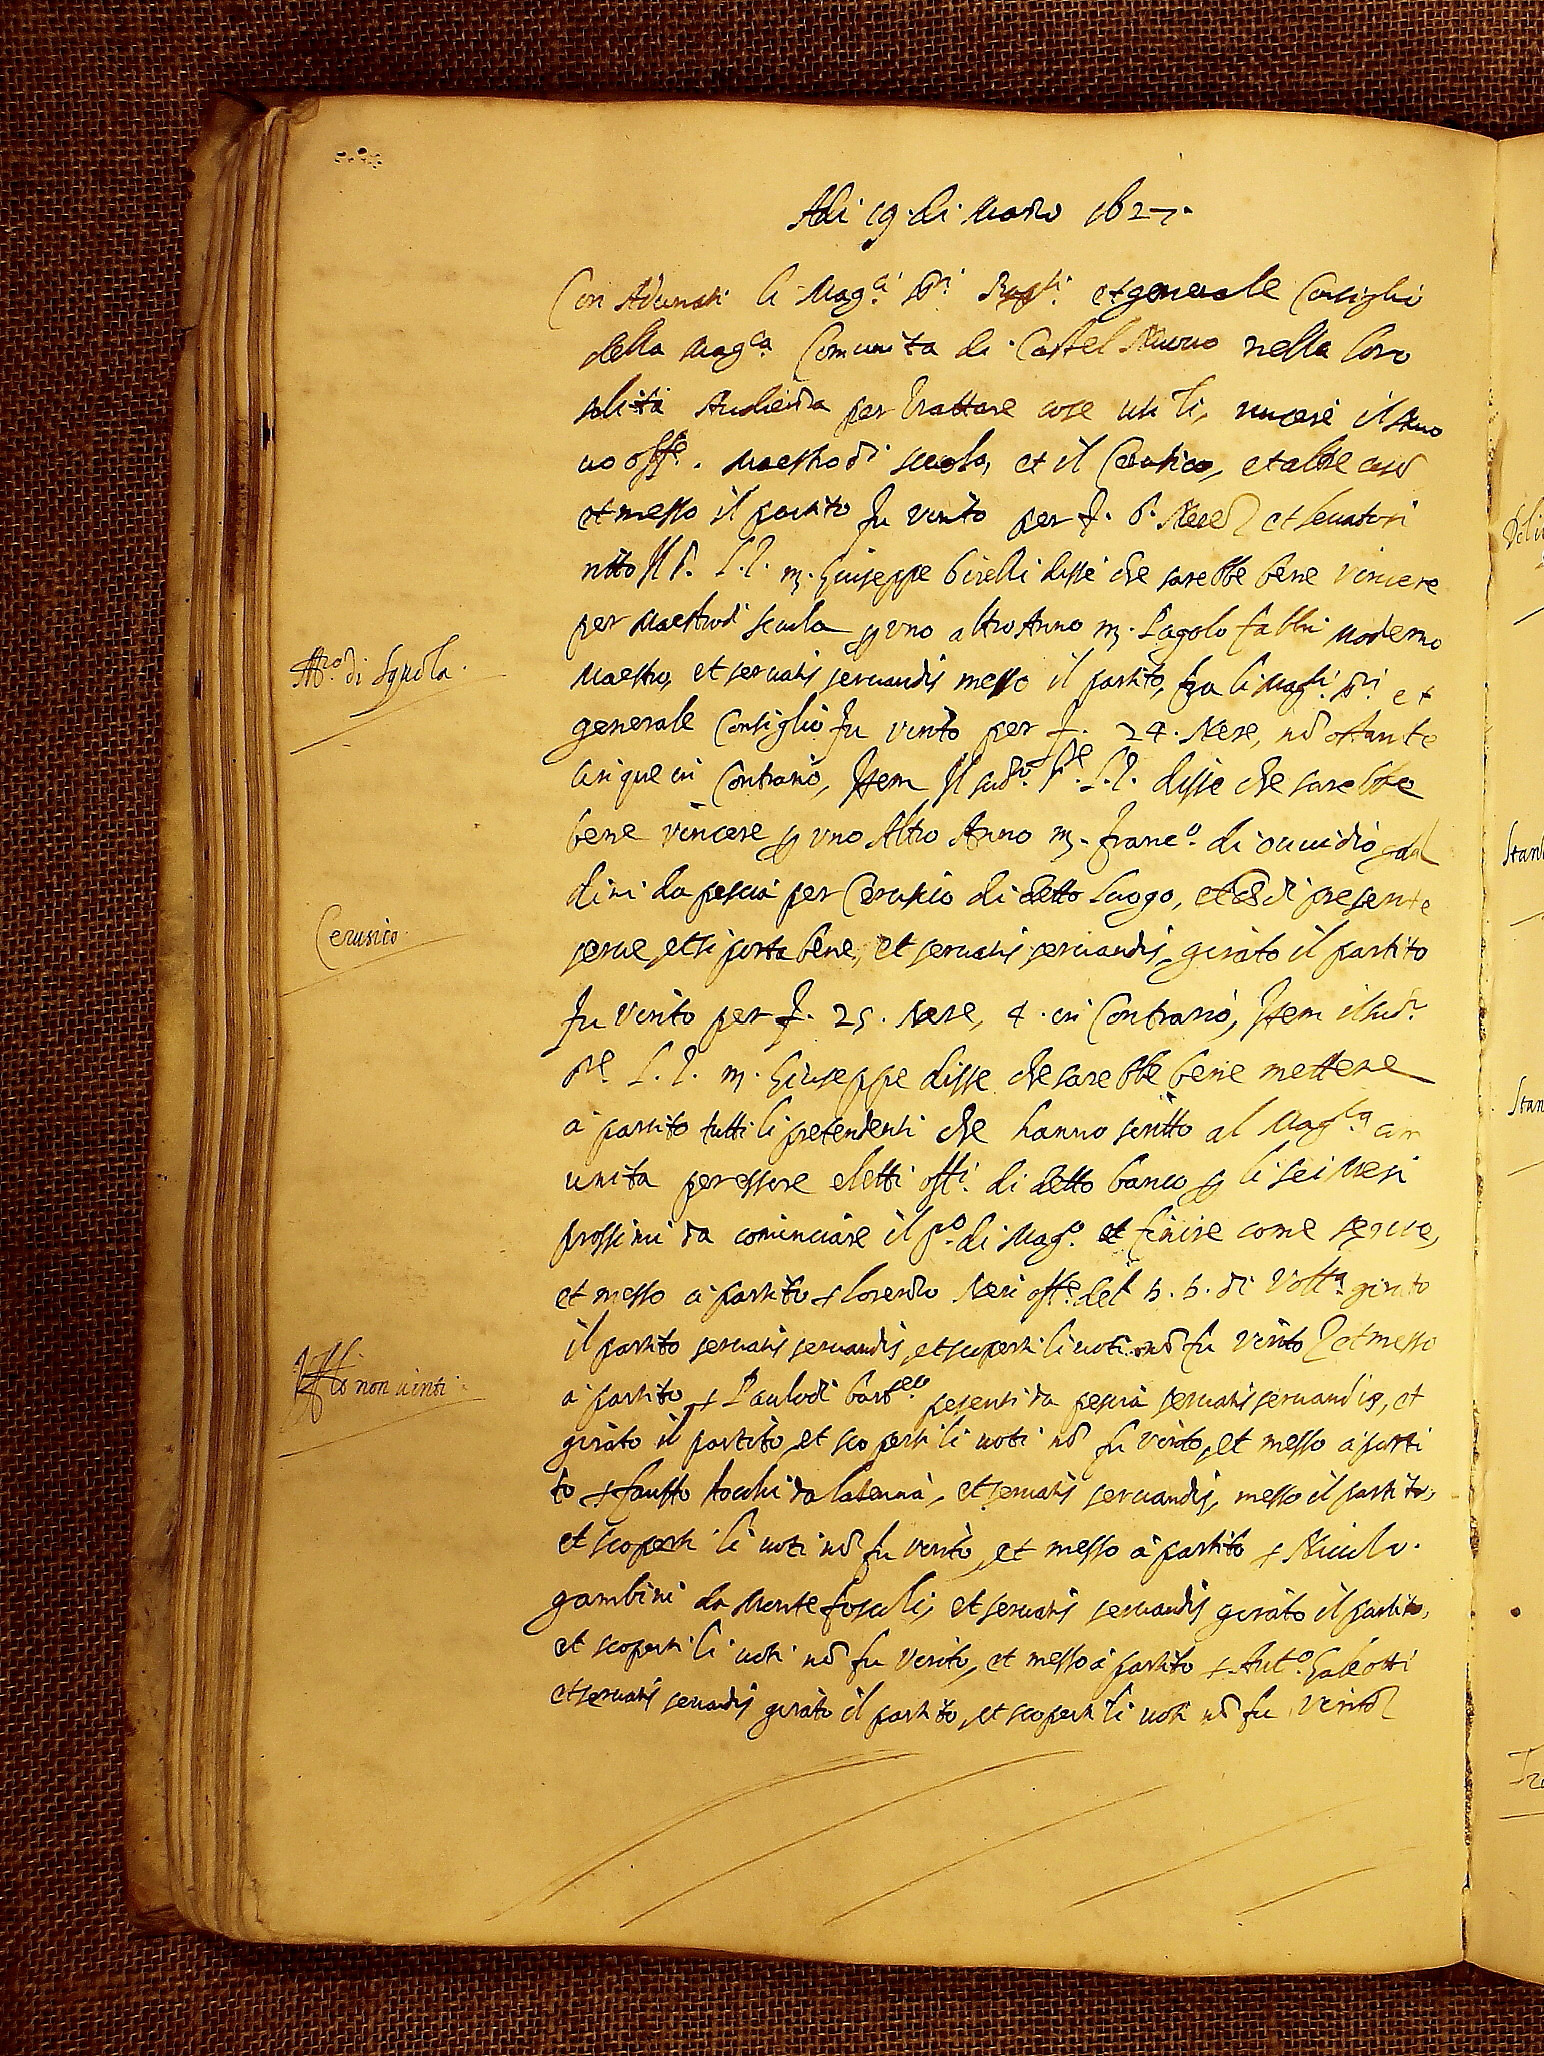 Adi 19 di Marzo 1627.
Con Adunati li Mag.ci Sri et generale Consiglio
della Mag.ca Comunita di Castel Nuovo nella loro
solita Audienza per trattare cose utili, vincere il nuo
vo off.le Maestro di scuola, et il Cerusico, et altre cose
et messo il partito fu vinto per f. et servatori
m. Giuseppe disse che sarebbe bene vincere
per Maestro di scuola p uno altro Anno m. Pagolo Fabbri moderno
Maestro, et servatis servandis messo il partito, fra li Mag.ci Sri et
generale Consiglio fu vinto per f. 24. Nere, nō ostante
cinque in Contrario, Item Il sud.o P.re L.P. disse che sarebbe
bene vincere p uno Altro Anno m. Franc.o di ouuidio
dini da pescia per Cerusico di detto luogo, et che di presente
serve, et si porta bene, et servatis servandis, girato il partito
fu vinto per f. 25. Nere, 4. in Contrario, Item il sud.o
P.re L.P. m. Giuseppe disse che sarebbe bene mettere
à partito tutti li pretendenti che hanno scritto al Mag.ca com
unita per essere eletti off.li di detto banco p li sei Mesi
prossimi da cominciare il p.o di Mag.o et finire come segue,
et messo à partito s Lorenzo Neri off.le del b. b. di Volt.a girato
il partito servatis servandis, et scoperti li voti nō fu vinto et messo
à partito s Paulo di Bart.eo pesenti da pescia servatis servandis, et
girato il partito, et scoperti li voti nō fu vinto, et messo à parti
to s fausto da laterina, et servatis servandis, messo il partito,
et scoperti li voti nō fu vinto, et messo à partito s Nicolo
gambini da Monte foscoli, et servatis servandis girato il partito,
et scoperti li voti nō fu vinto, et messo à partito s Ant.o Galeotti
et servatis servandis girato il partito, et scoperti li voti nō fu vinto
M.ro di Squola.
Cerusico
Off.li non vinti